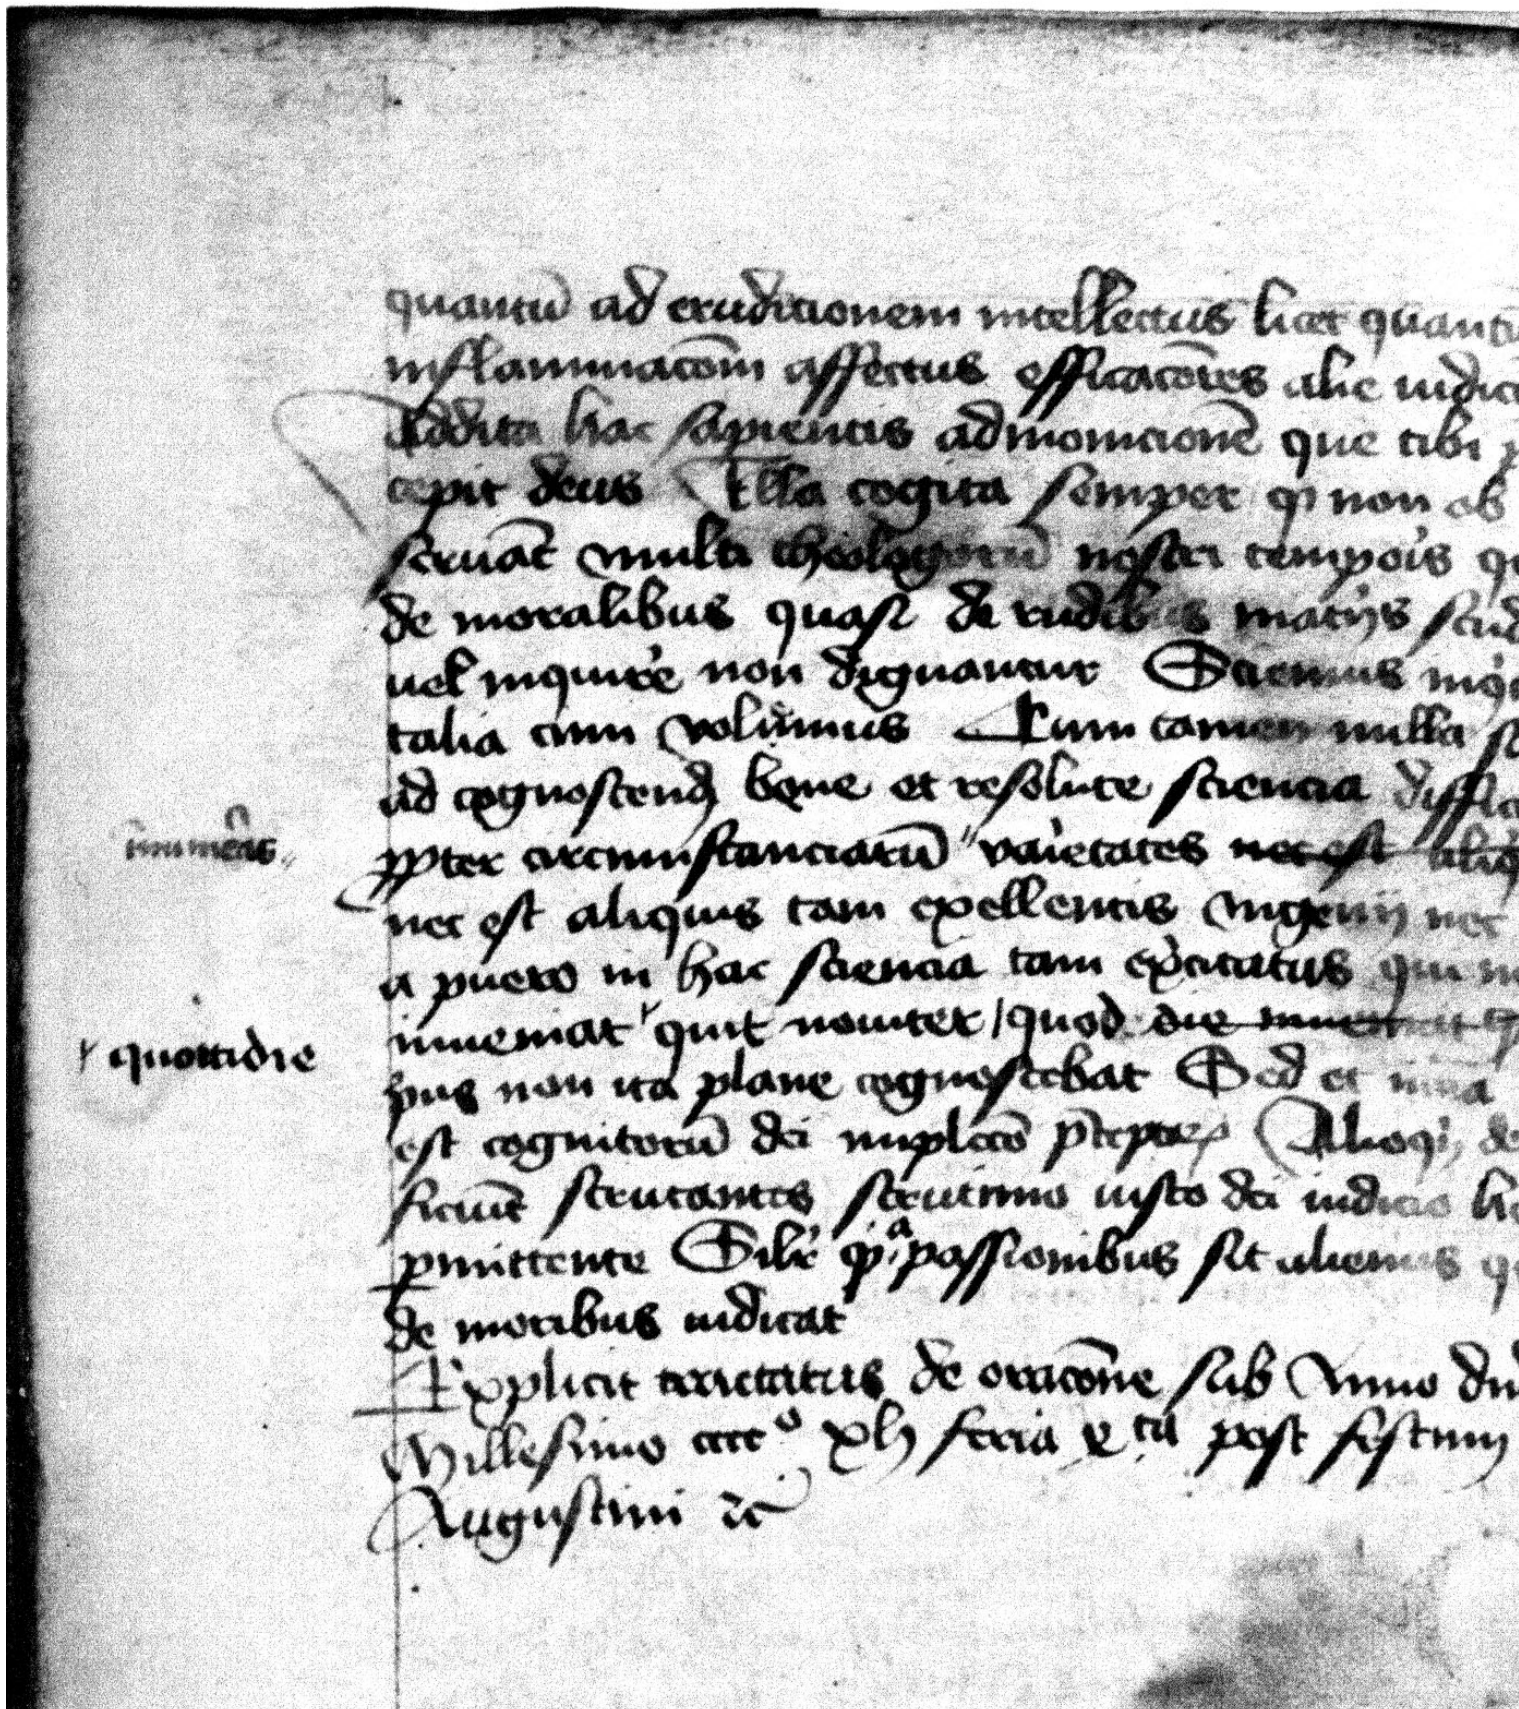 quantū ad erudicionem intellectus licet quantū
inflammacōm affectus efficacōres alie iudic
Addita hac sapientis admonicionē que tibi p
cepit deus Illa cogita semper qͥ non ob
seruāt multi theologorū nostri tempoꝛis q
de moralibus quasi de rudibus matijs stud
uel inquirē non dignantur Sciemus inq
talia cum volumus Cum tamen nulla s
ad cognoscend bene et resolute sciencia diffic
īnumēas
ꝓpter circumstanciarū vaietates nec est aliq
nec est aliquis tam exellentis ingenij nec
a puero in hac sciencia tam exͥcitatus qui n
inueniat quit nouiter quod die
quottidie
pͥus non ita plane cognoscebat Sed et
est cognitorū dei p̄ceptoꝝ Alioqͥ de
ficiūt scrutantes scrutinio iusto dei iudicio
ꝑmittente Silr̄ qͥ a passionibus sit alienus q
de moribus iudicat
Explicit tractatus de oracōne sub Anno dn
Millesimo cccc° xli feria qͬta post festum
Augustini ⁊c̄